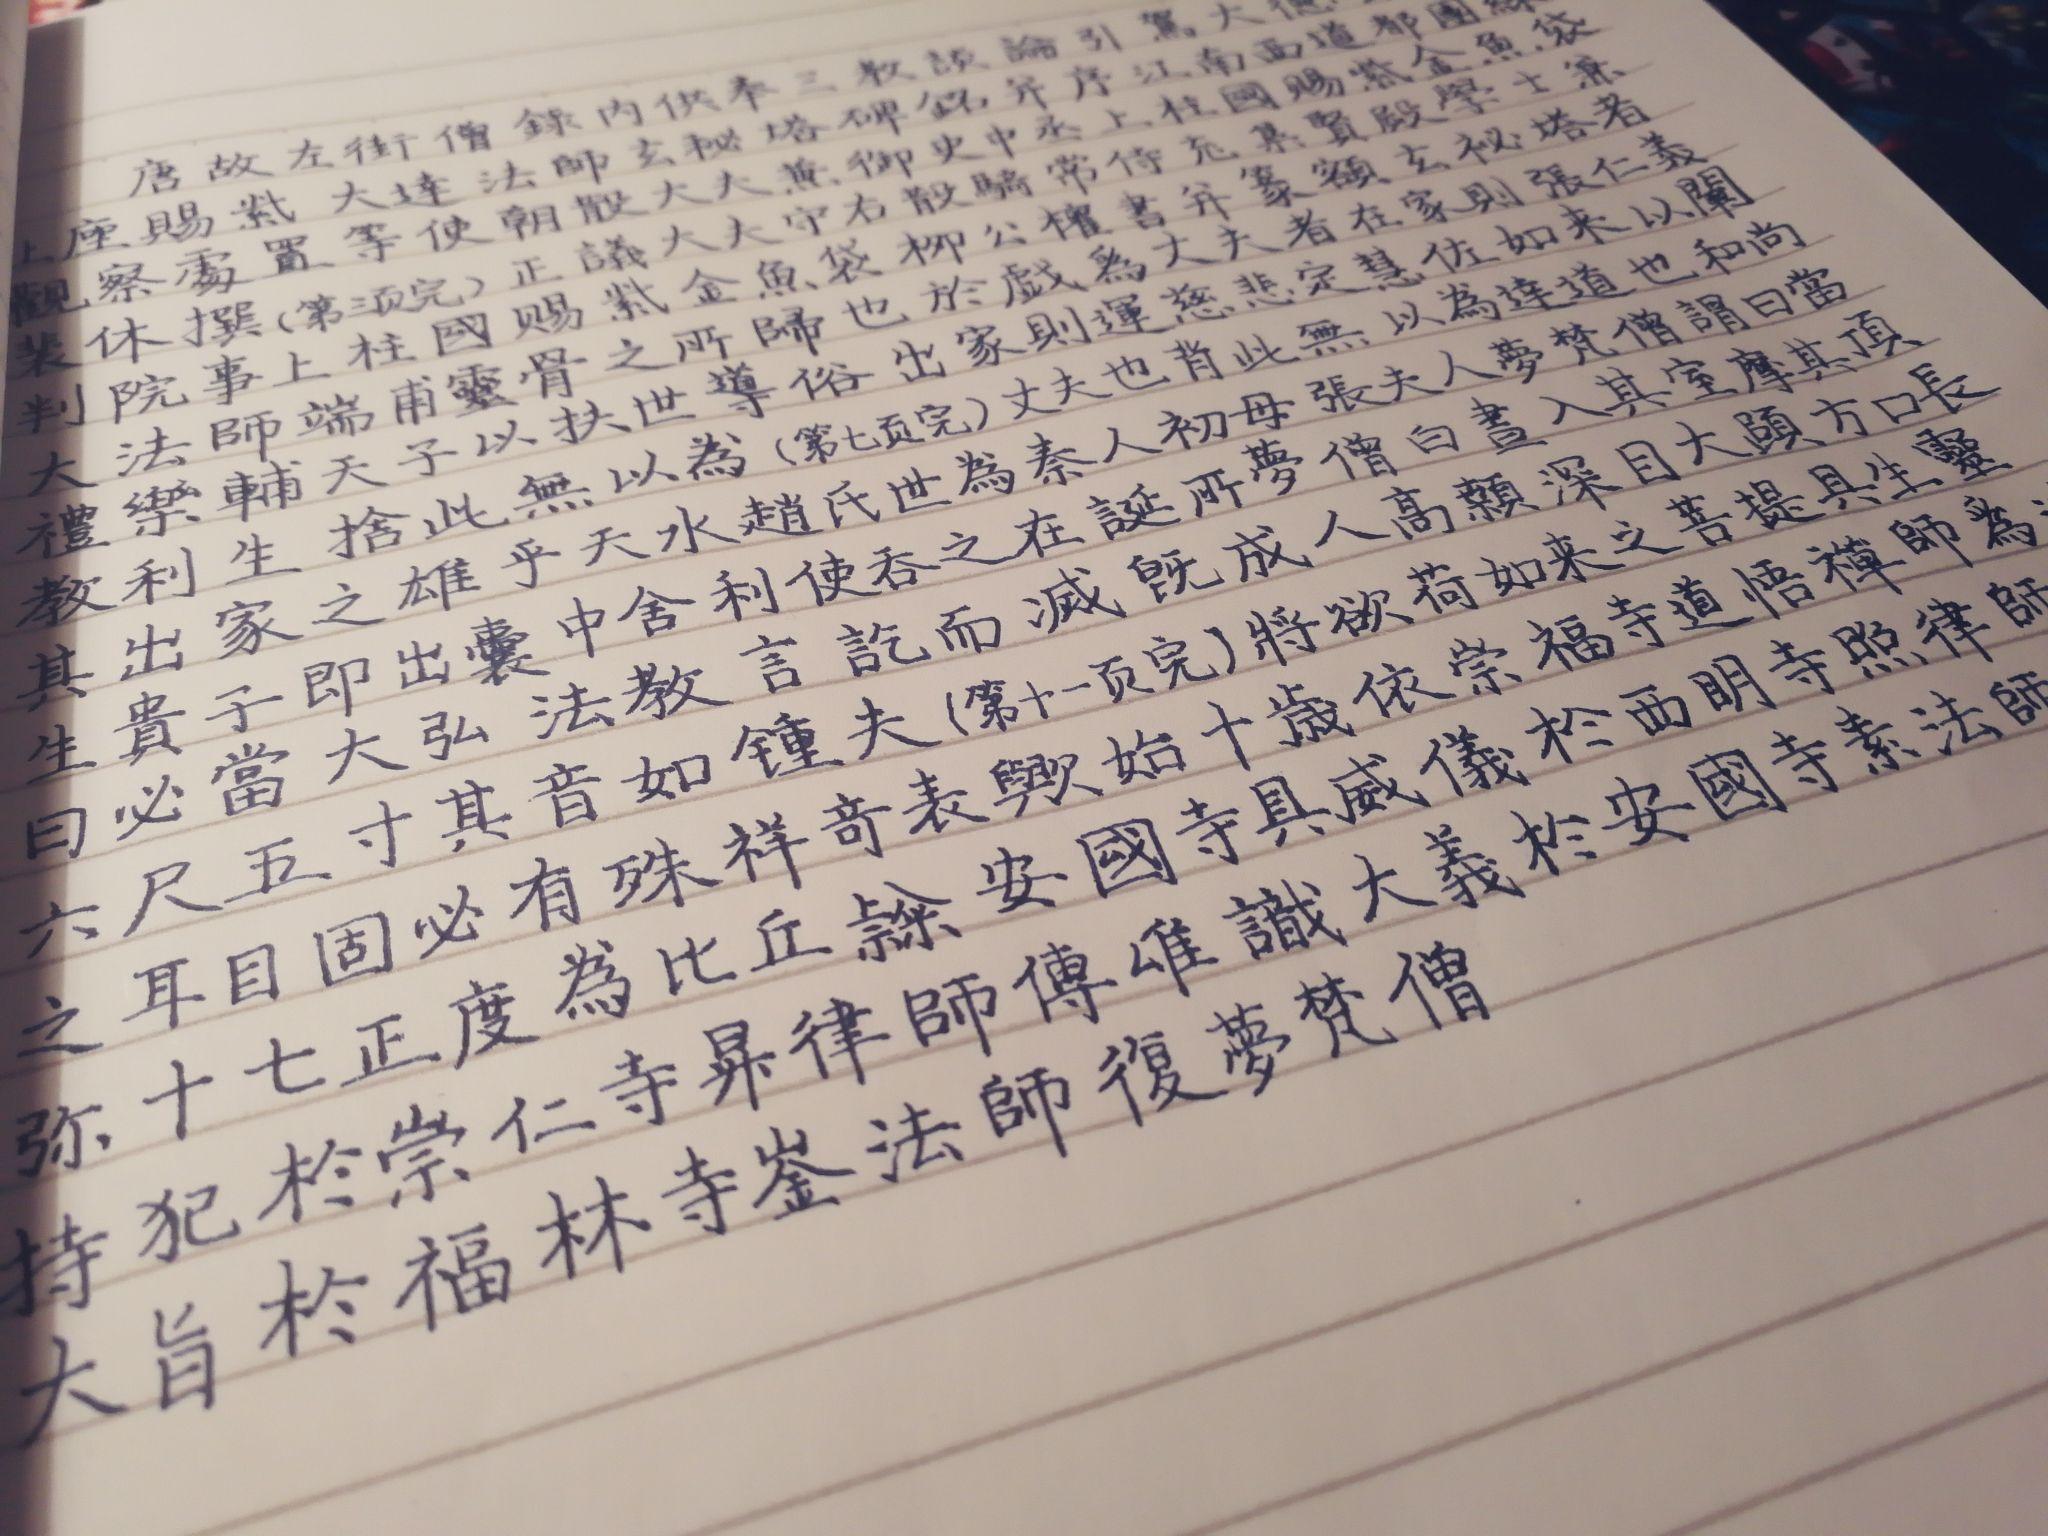 唐故左街僧錄內供奉三教談論引駕大德
上座賜紫大達法師玄秘塔碑銘并序江南西道都團練
觀察處置等使朝散大夫兼御史中丞上柱國賜紫金魚袋
裴休撰(第三页完)正議大夫守右散騎常侍充集賢殿學士兼
判院事上柱國賜紫金魚袋柳公權書并篆額玄祕塔者
大法師端甫靈骨之所歸也於戲為丈夫者在家則張仁義
禮樂輔天子以扶世導俗出家則運慈悲定慧佐如来以闡
教利生捨此無以為(第七页完)丈夫也背此無以為達道也和尚
其出家之雄乎天水趙氏世為秦人初母張夫人夢梵僧謂曰當
生貴子即出囊中舍利使吞之在誕所夢僧白晝入其室摩其頂
曰必當大弘法教言訖而滅既成人高顙深目大頤方口長
六尺五寸其音如鍾夫(第十一页完)將欲荷如来之菩提具生靈
之耳目固必有殊祥奇表歟始十歲依崇福寺道悟禪師為沙
弥十七正度為比丘隸安國寺具威儀於西明寺照律師
持犯於崇仁寺昇律師傳唯識大義於安國寺素法師
大旨於福林寺崟法師復夢梵僧